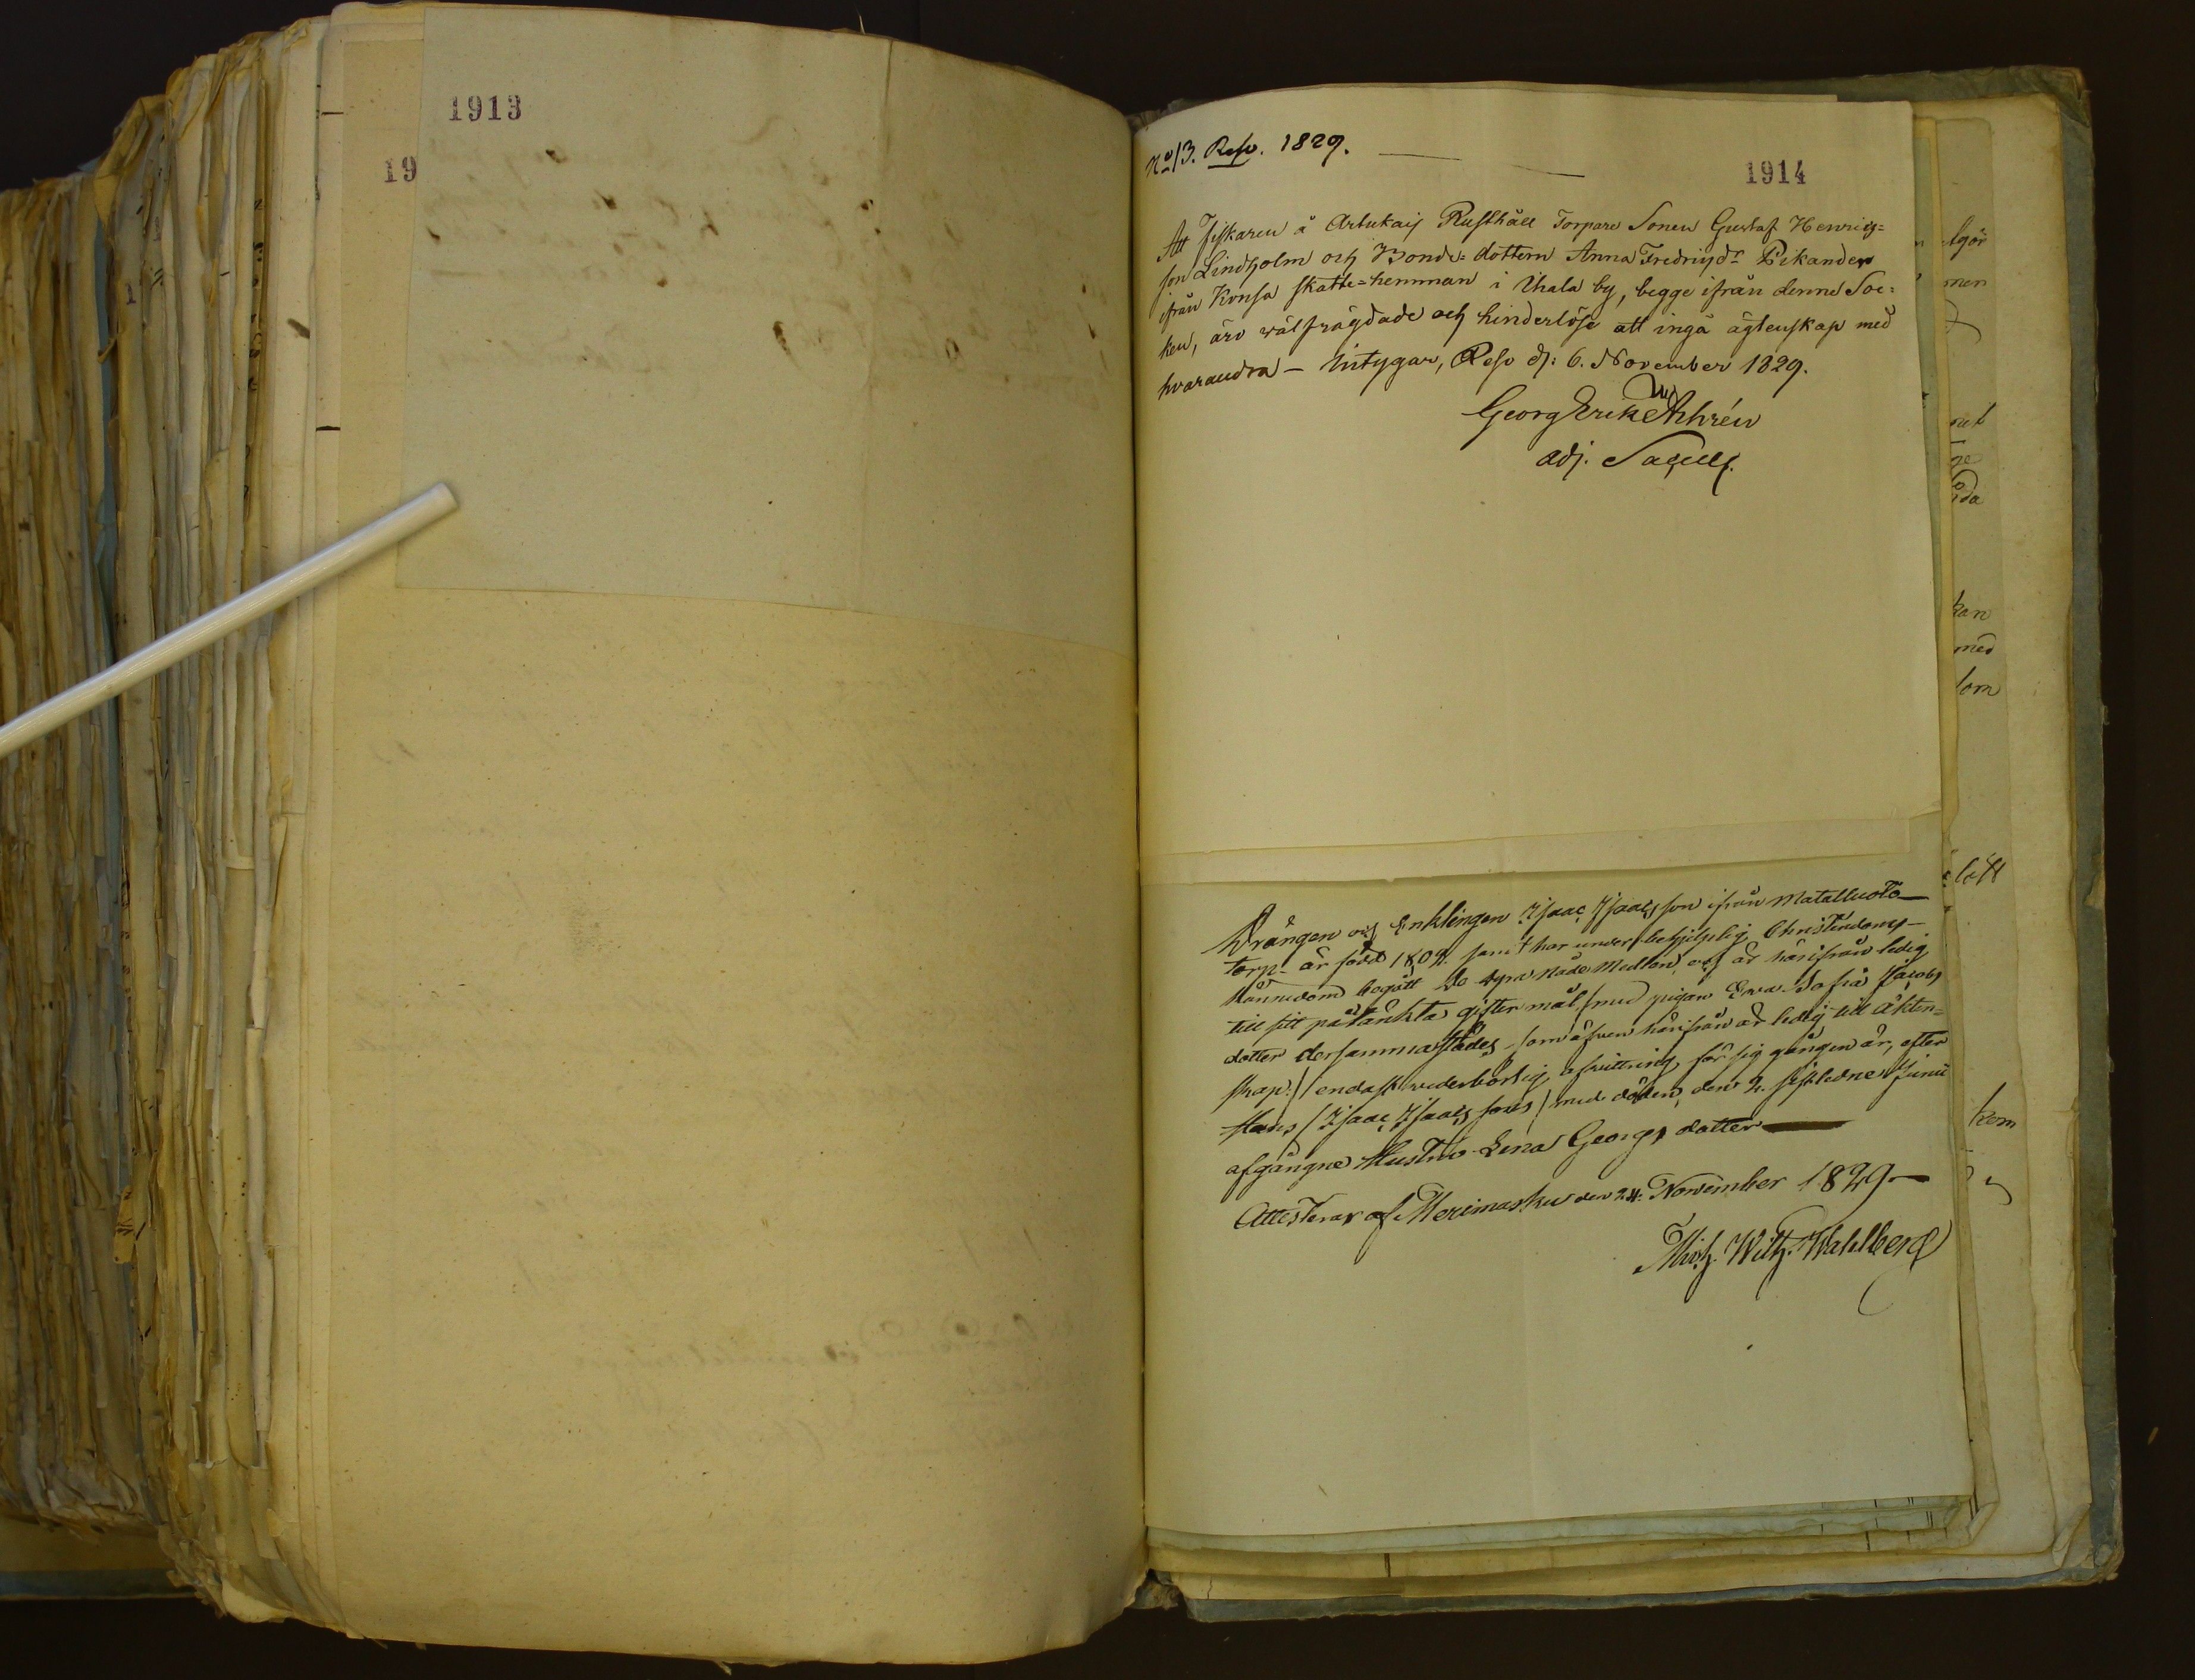 1913
19
No 13. Reso. 1829.
1914
Att Fiskaren å Artukais Rusthåll Torpare Sonen Gustaf Henrics=
son Lindholm och Bonde=dottern Anna Fredricsdr Pikander
ifrån Konsa skatte=hemman i Uhala by, begge ifrån denne Soc=
ken, äro wälfrägdade och hinderlöse att ingå ägtenskap med
hvarandra – Intygar, Reso d: 6. November 1829.
Georg Erik Ahrén
adj. Sacell.
Drängen och Enklingen Isaac Isaacsson ifrån Matalluoto
Torp är född 1802. samt har under behjelplig Christendoms
Kännedom begått de dyra Nåde Medlen, och är härifrån ledig
till sitt påtänkta giftermål /med pigan Ewa Sofia Jacobs
dotter dersammastädes, som äfwen härifrån är ledig till Äkten=
skap./ endast wederbörlig afwittring för sig gången är, efter
Hans /Isaac Isaacssons/ med döden, den 2. sistledne Junii
afgångne Hustru Lena Georgs dotter
Attesterar af Merimasku den 24. November 1829
Mich. Wilh. Wahlberg
lgör
men
net
ge
kan
med
lom
kom